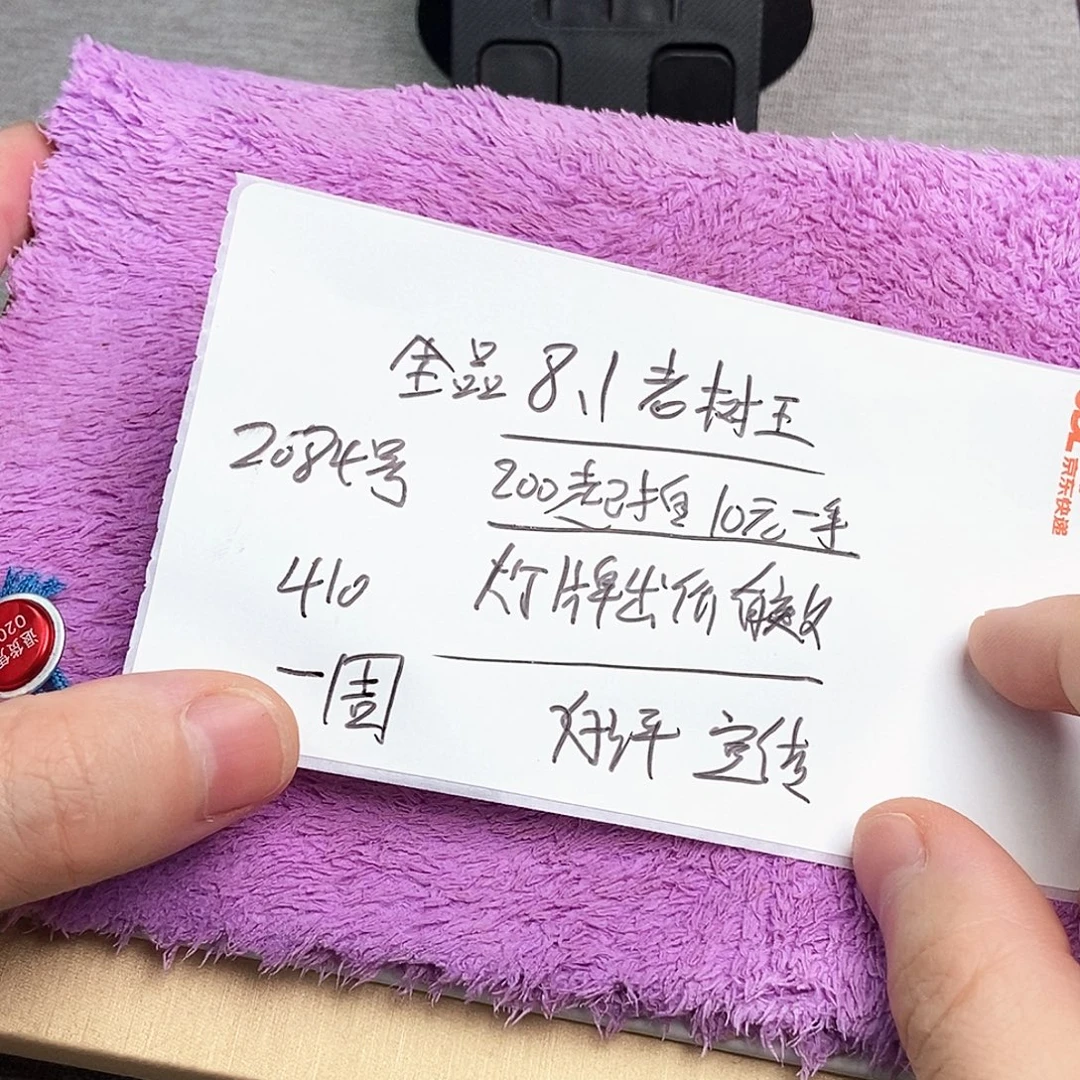 全品 8.1 老树王
2084号
200起拍 10元一手
410
灯牌出价有效
一周
宣传
京东快递
退货
020